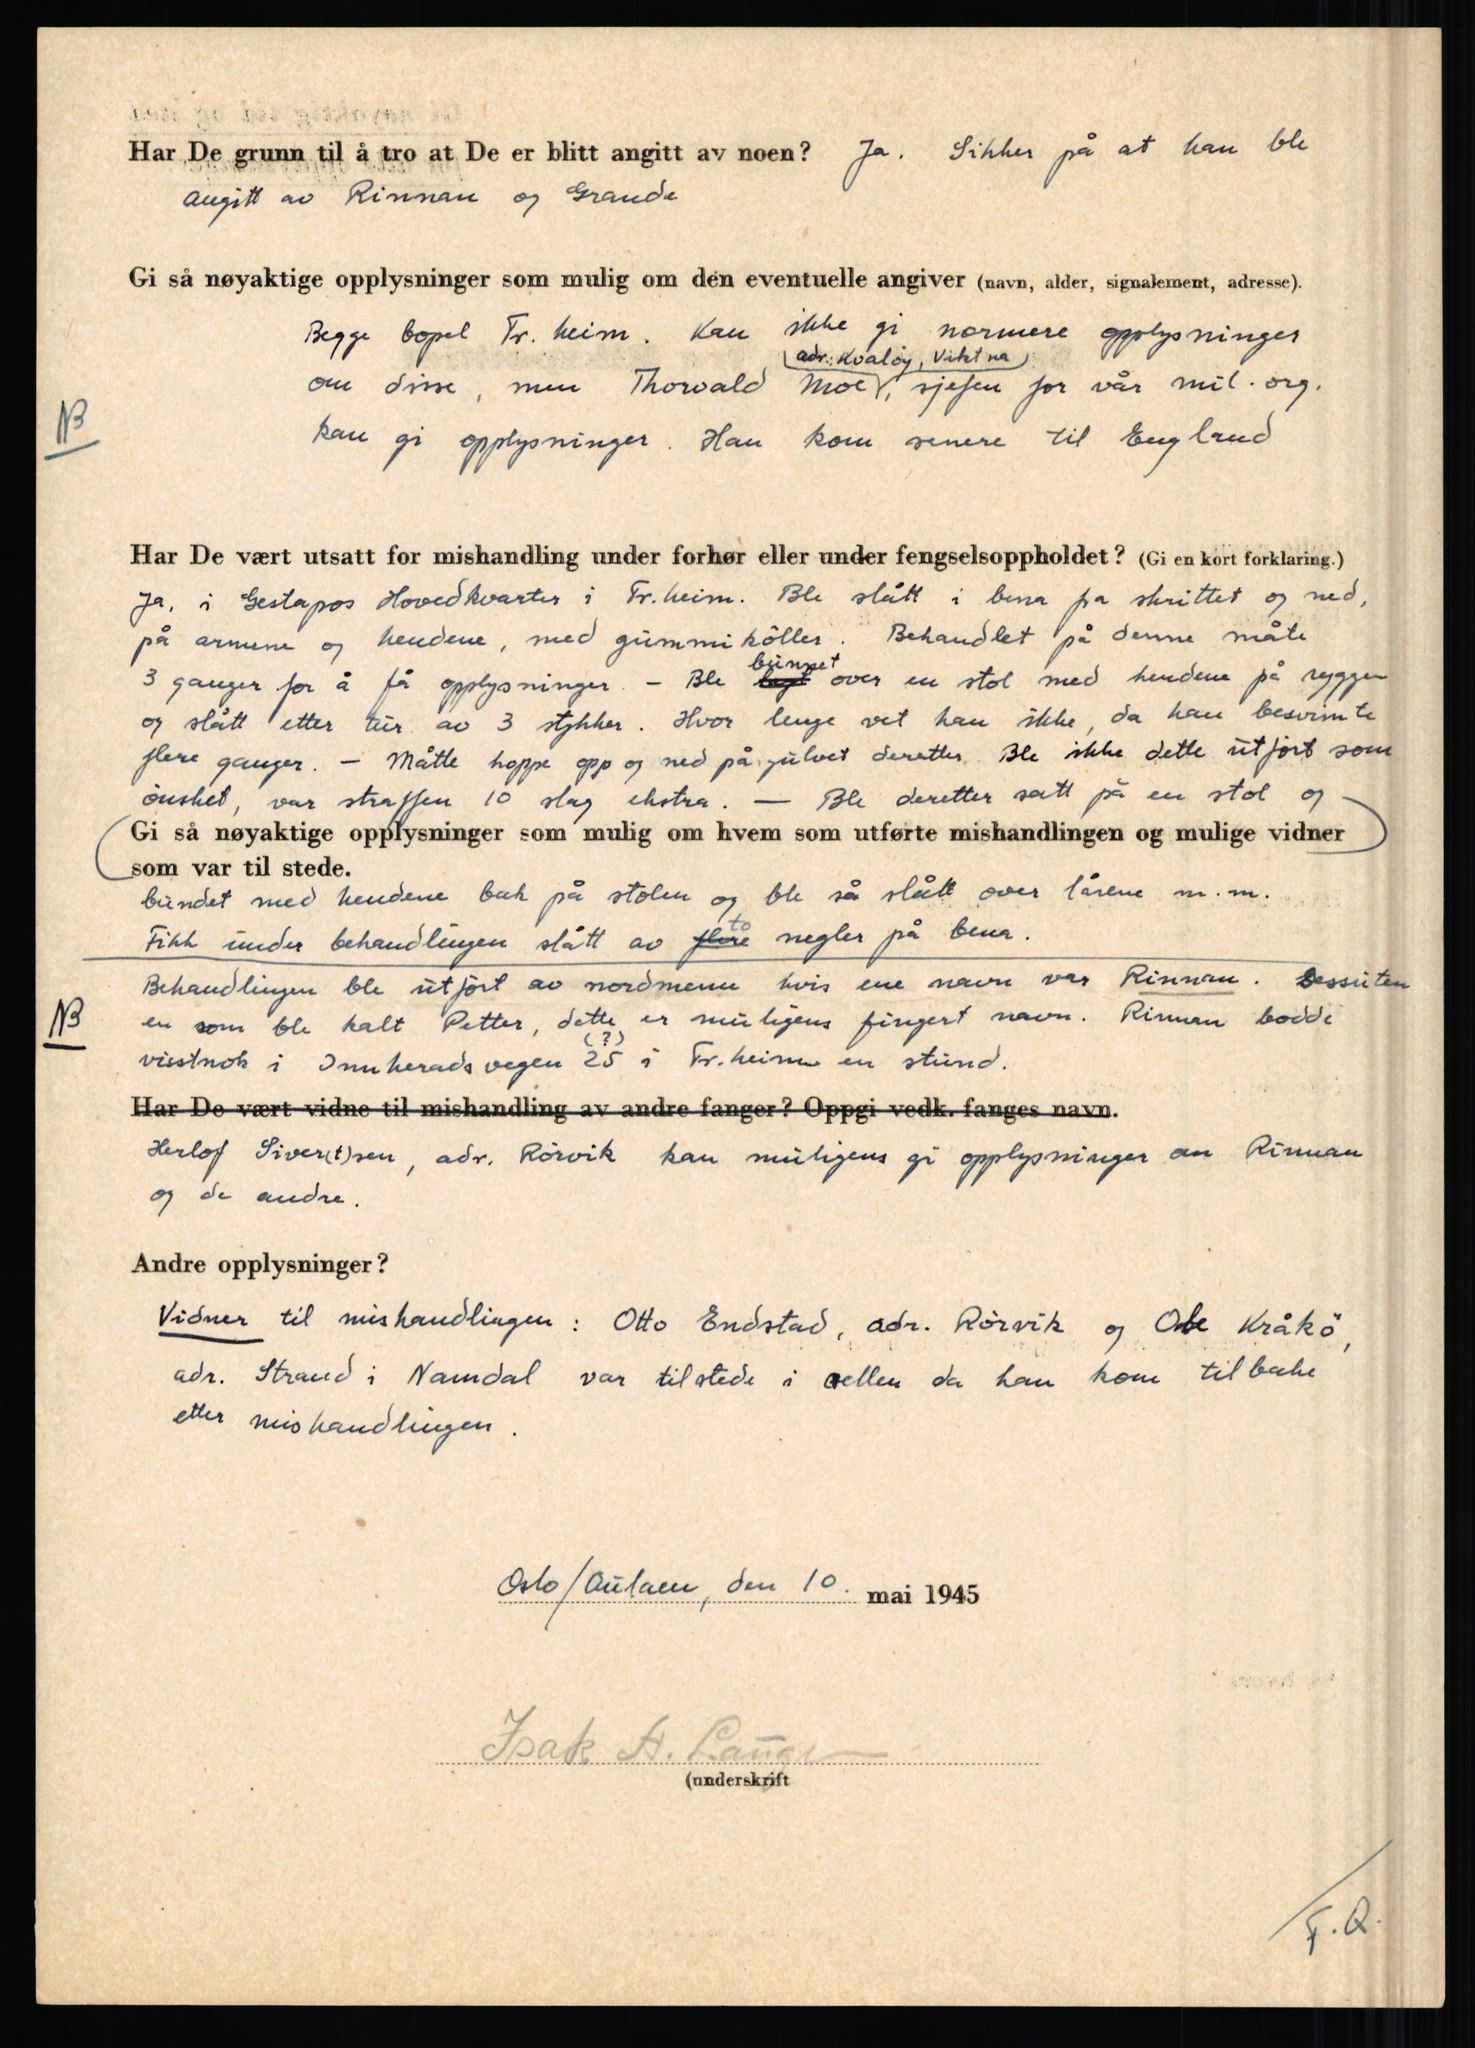 Har De grunn til å tro at De er blitt angitt av noen? Ja. Sikker på at han ble
angitt av Rinnan og Grande
Gi så nøyaktige opplysninger som mulig om den eventuelle angiver (navn, alder, signalement, adresse).
Begge bopel Tr. heim. Kan ikke gi nærmere opplysninger
(adr.: Kvaløy, Vikna)
om disse, men Thorvald Moe, sjefen for vår mil. org.
NB
kan gi opplysninger. Han kom senere til England
Har De vært utsatt for mishandling under forhør eller under fengselsoppholdet? (Gi en kort forklaring.)
Ja, i Gestapos Hovedkvarter i Tr.heim. Ble slått i bena fra skrittet og ned,
på armene og hendene, med gummikøller. Behandlet på denne måte
bunnet
3 ganger for å få opplysninger – Ble over en stol med hendene på ryggen
og slått etter tur av 3 stykker. Hvor lenge vet han ikke, da han besvimte
flere ganger. – Måtte hoppe opp og ned på gulvet deretter. Ble ikke dette utført som
ønsket, var straffen 10 slag ekstra. — Ble deretter satt på en stol og
Gi så nøyaktige opplysninger som mulig om hvem som utførte mishandlingen og mulige vidner
som var til stede.
bundet med hendene bak på stolen og ble så slått over lårene m.m.
to
Fikk under behandlingen slått av flere negler på bena.
Behandlingen ble utført av nordmenn hvis ene navn var Rinnan. Dessuten
NB
en som ble kalt Petter, dette er muligens fingert navn. Rinnan bodde
(?)
visstnok i Innheradsvegen 25 i Tr.heim en stund.
Har De vært vidne til mishandling av andre fanger? Oppgi vedk. fanges navn.
Herlof Siver(t)sen, adr. Rørvik kan muligens gi opplysninger om Rinnan
og de andre.
Andre opplysninger?
Vidner til mishandlingen: Otto Endstad, adr. Rørvik og Ole Kråkø,
adr. Strand i Namdal var tilstede i cellen da han kom tilbake
etter mishandlingen.
Oslo/Aulaen, den 10. mai 1945
Isak A.
(underskrift
F.Q.